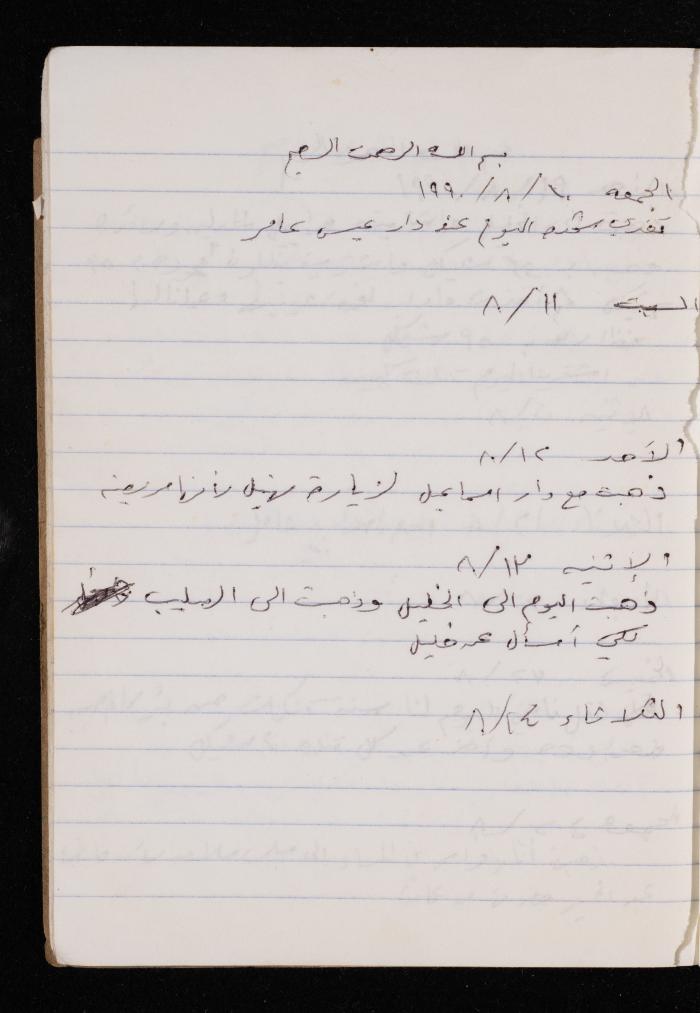 بسم الله الرحمن الرحيم
الجمعه ١٠/٨/١٩٩٠
اليوم عند دار عيسى عامر
السبت ١١/٨
الأحد ١٢/٨
ذهبت مع دار اسماعيل لزيارة لأنها مريضه
الإثنين ١٣/٨
ذهبت اليوم الى الخليل وذهبت الى الصليب
لكي أسأل عن خليل
الثلاثاء ١٤/٨